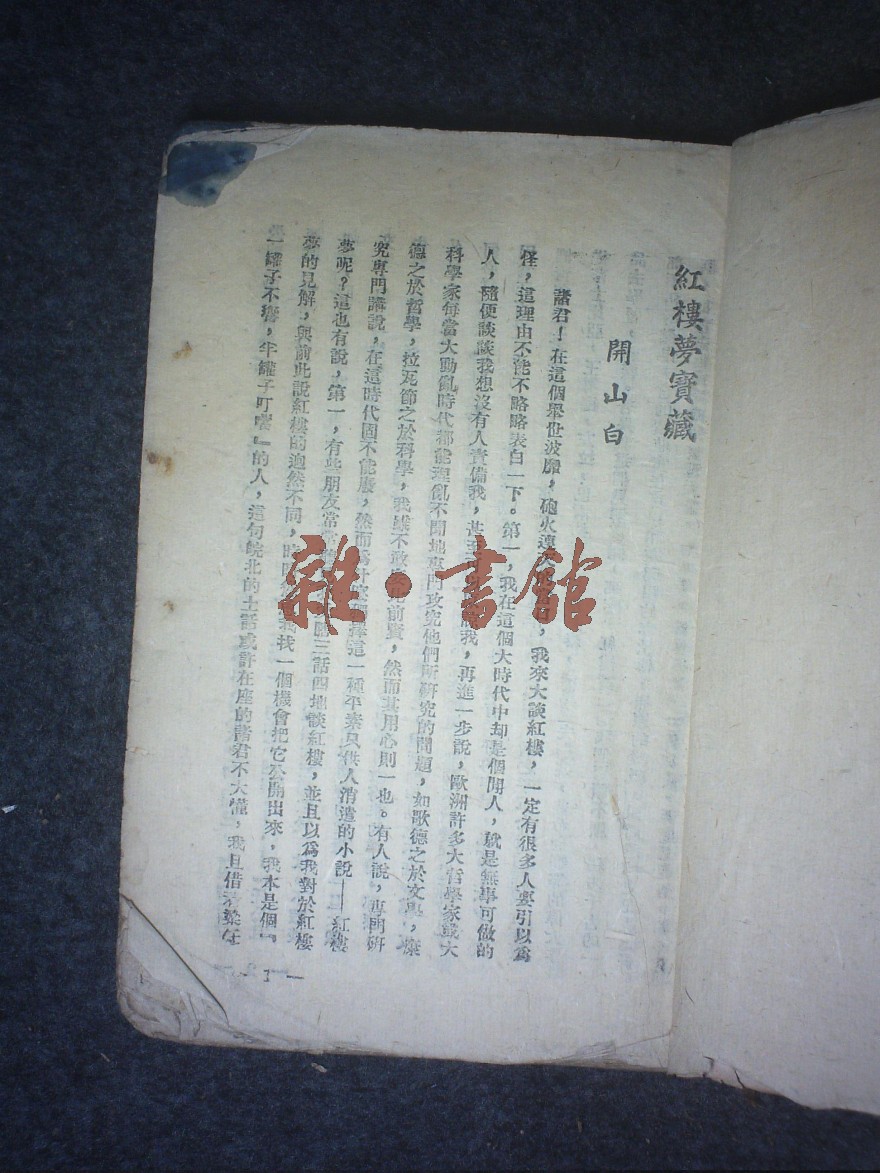 紅樓夢寶藏
開山白
諸君！在這個舉世波靡，砲火連天，我來大談紅樓，一定有很多人要引以爲
怪，這理由不能不略略表白一下。第一，我在這個大時代中却是個閒人，就是無事可做的
人，隨便談談我想沒有人責備我，甚至我，再進一步說，歐洲許多大哲學家或大
科學家每當大動亂時代都能理亂不聞地專門攻究他們所研究的問題，如歌德之於文學，康
德之於哲學，拉瓦節之於科學，我雖不敢前賢，然而其用心則一也。有人說，專門研
究專門講說，在這時代固不能廢，然而爲什麼選擇這一種平素只供人消遣的小說——紅樓
夢呢？這也有說，第一，有些朋友常常三話四地談紅樓，並且以爲我對於紅樓
夢的見解，與前此說紅樓的逈然不同，時我找一個機會把它公開出來，我本是個『
一罐子不響，半罐子叮噹』的人，這句皖北的土話或許在座的諸君不大懂，我且借着梁任
— 1 —
雜·書館